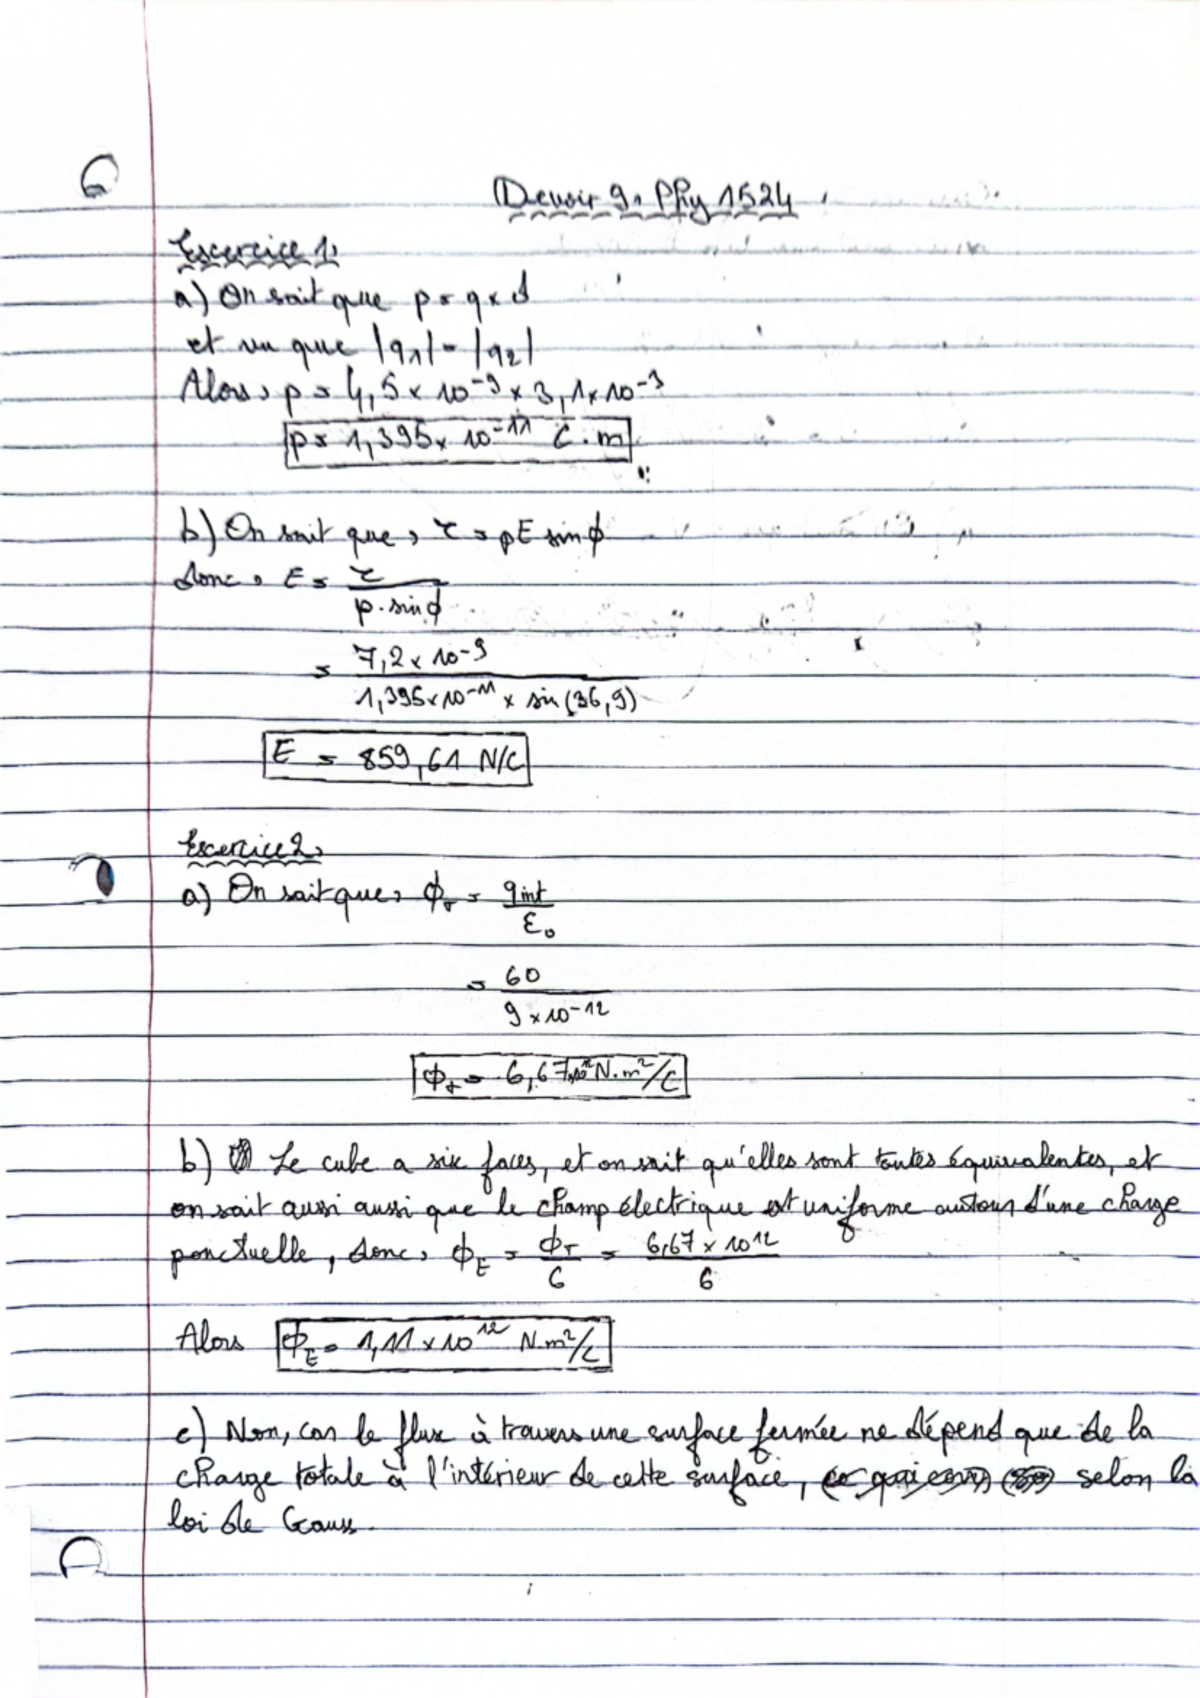 Devoir 9. Phy 1524
Excercice 1:
a) On sait que p = q x d
et vu que |q1| = |q2|
Alors, p = 4,5 x 10^-9 x 3,1 x 10^-3
p = 1,395 x 10^-11 C.m
b) On sait que, τ = pE sinϕ
donc, E = τ / p.sinϕ
= 7,2 x 10^-9 / 1,395 x 10^-11 x sin(36,9)
E = 859,61 N/C
Excercice 2:
a) On sait que, ϕT = qint / ε0
= 60 / 9 x 10^-12
ϕT = 6,67x10^12 N.m²/C
b) Le cube a six faces, et on sait qu'elles sont toutes équivalentes, et
on sait aussi aussi que le champ électrique est uniforme autour d'une charge
ponctuelle, donc, ϕE = ϕT / 6 = 6,67 x 10^12 / 6
Alors ϕE = 1,11 x 10^12 N.m²/C
c) Non, car le flux à travers une surface fermée ne dépend que de la
charge totale à l'intérieur de cette surface, selon la
loi de Gauss.